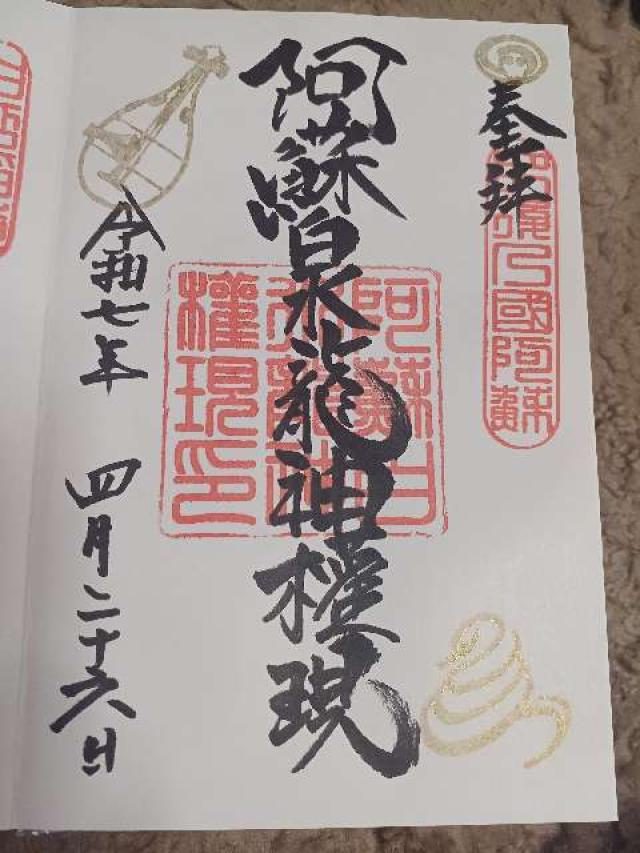 奉拝
乃國阿蘇
阿蘇白水龍神權現
阿蘇白
水龍神
權現印
令和七年 四月二十六日